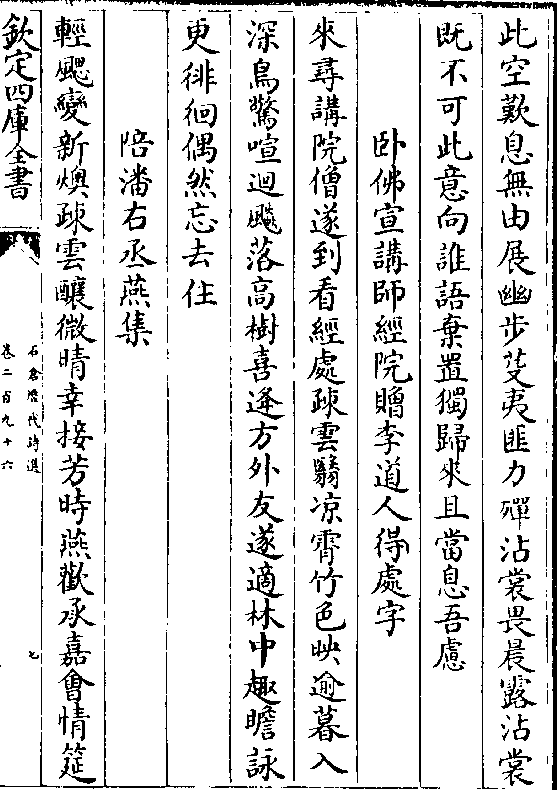 此空歎息無由展幽步芟夷匪力殫沾裳畏晨露沾裳
既不可此意向誰語棄置獨歸來且當息吾慮
卧佛宣講師經院贈李道人得處字
來尋講院僧遂到看經處疎雲翳凉霄竹色映逾暮入
深鳥驚喧迴飈落高樹喜逢方外友遂適林中趣瞻詠
更徘徊偶然忘去住
陪潘右丞燕集
輕颸變新燠疎雲釀微晴幸接芳時燕歡承嘉會情筵
欽定四庫全書
石倉歷代詩選
卷二百九十六
七